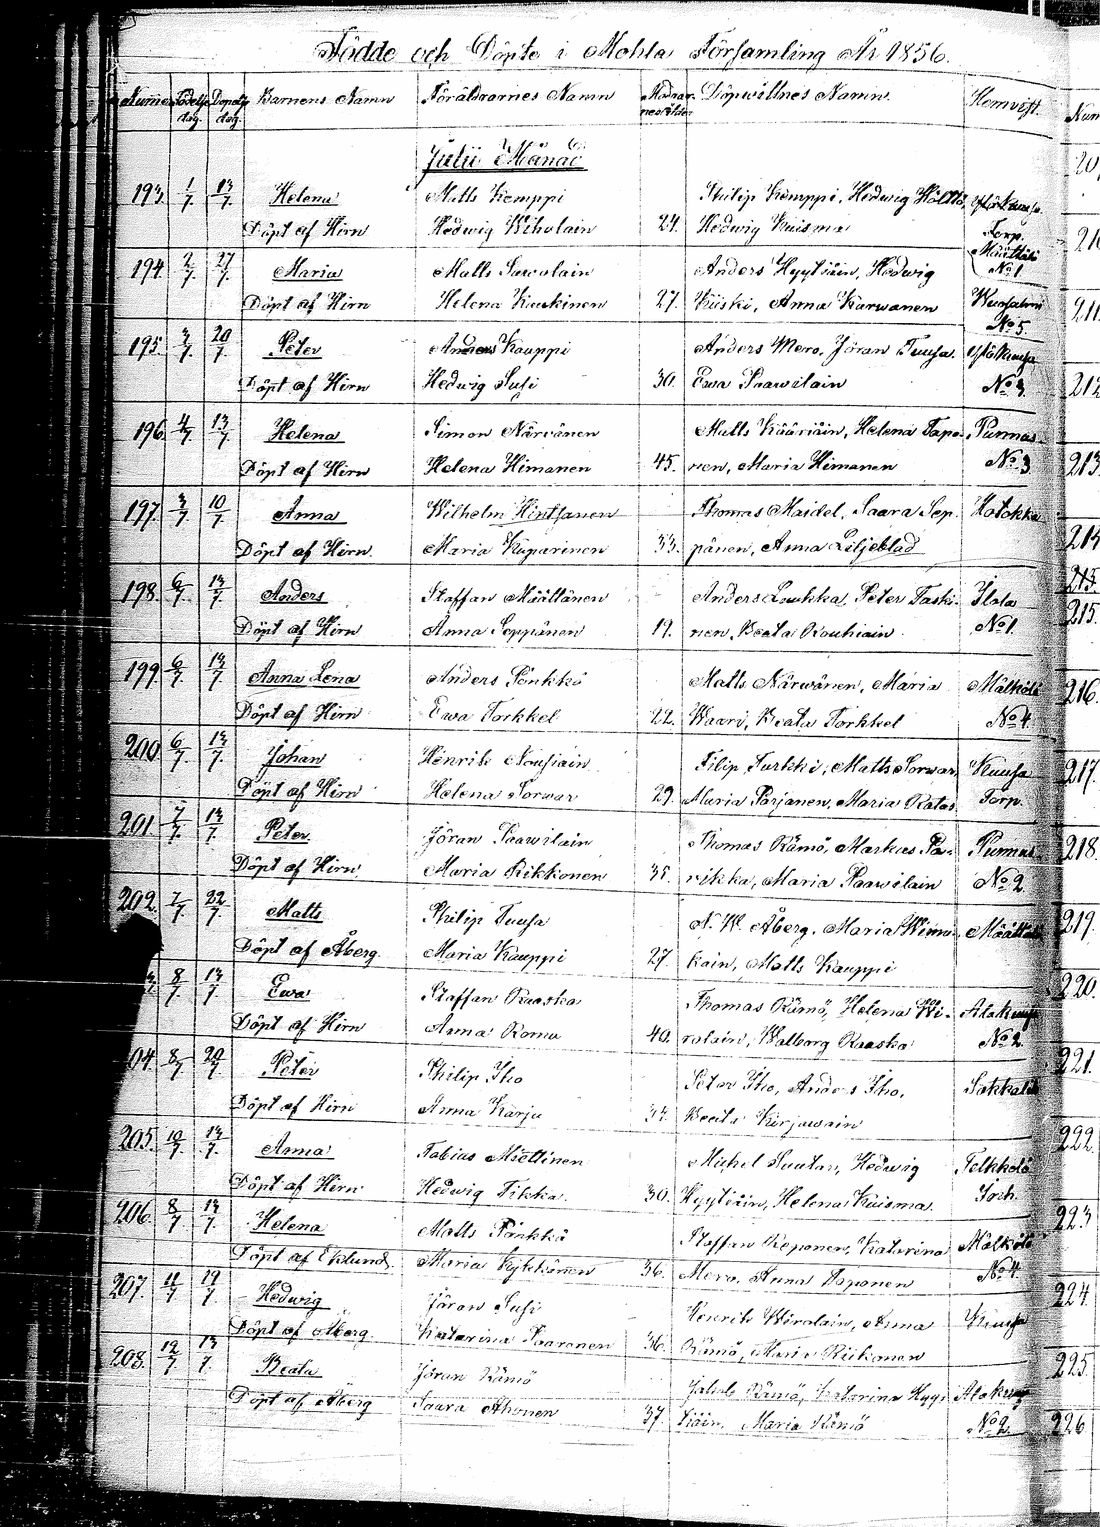 Födde och Döpte i Mohla Församling År 1856.
Födelse dag. Döpelse dag. Barnens Namn Föräldrarnes Namn Modrar nes ålder Döpwittnes Namn. Hemvist.
Julii Månad
193. 1/7 13/7 Helena Matts Kemppi Philip Kemppi, Hedwig
Döpt af Hirn Hedwig 24. Hedwig Kuisma Torp.
194. 2/7 27/7 Maria Matts Anders Hyytiäin, Hedwig No 1
Döpt af Hirn Helena Kaukinen 27. Kiiski, Anna Karwanen No 5
195. 3/7 20/7 Peter Anders Kauppi Anders Mero, Jöran Tuusa.
Döpt af Hirn Hedwig Susi 30. Ewa Paawilain No 3
196. 4/7 13/7 Helena Simon Närwänen Matts Kääriäin, Helena Tapo- Punnus
Döpt af Hirn Helena Himanen 45. nen, Maria Himanen No 3
197. 3/7 10/7 Anna Wilhelm Hintsanen Thomas Maidel, Saara Sep- Hotokka
Döpt af Hirn Maria Kuparinen 33. pänen, Anna Liljeblad
198. 6/7 13/7 Anders Staffan Määttänen Anders Loukka, Peter Taski- Ilola
Döpt af Hirn Anna Seppänen 19. nen, Beata Rouhiain No 1.
199. 6/7 13/7 Anna Lena Anders Pönkkö Matts Närwänen, Maria Mälkölä
Döpt af Hirn Ewa Torkkel 22. Waari, Beata Torkkel No 4
200. 6/7 13/7 Johan Henrik Nousiain Filip Turkki, Matts Sorwar, Kuusa
Döpt af Hirn Helena Sorwar 29. Maria Parjanen, Maria Ratas Torp.
201. 7/7 13/7 Peter Jöran Paawilain Thomas Rämö, Markus Pa- Punnus
Döpt af Hirn Maria Rikkonen 35. rikka, Maria Paawilain No 2
202. 7/7 22/7 Matts Philip Tuusa N. W. Åberg, Maria
Döpt af Åberg. Maria Kauppi 27. kain, Matts Kauppi
8/7 13/7 Ewa Staffan Raaska Thomas Rämö, Helena Wi- Alakuusa
Döpt af Hirn Anna Romu 40. rolain, Walborg Raaska No 2
04. 8/7 20/7 Peter Philip Iho Peter Iho, Anders Iho, Sakkala
Döpt af Hirn Anna Karju Beata Kirjawain
205. 10/7 13/7 Anna Tobias Miettinen Michel Suutar, Hedwig Telkkälä
Döpt af Hirn Hedwig Tikka 30. Hyytiäin, Helena Kuisma
206. 8/7 13/7 Helena Matts Pönkkö Staffan Reponen, Katarina Mälkölä
Döpt af Eklund. Maria 36. Mero, Anna Taponen No 4
207. 11/7 19/7 Hedwig Jöran Susi Henrik Wirolain, Anna Kuusa
Döpt af Åberg. Katarina Paaronen 36. Rämö, Maria
208. 12/7 13/7 Beata Jöran Rämö Jakob Rämö, Katarina Hyy- Alakuusa
Döpt af Åberg Saara Ahonen 37. tiäin, Maria Rämö No 2.
211.
212
213
214
215.
215.
216.
217.
218.
219.
220.
221.
222.
223
224.
225.
226